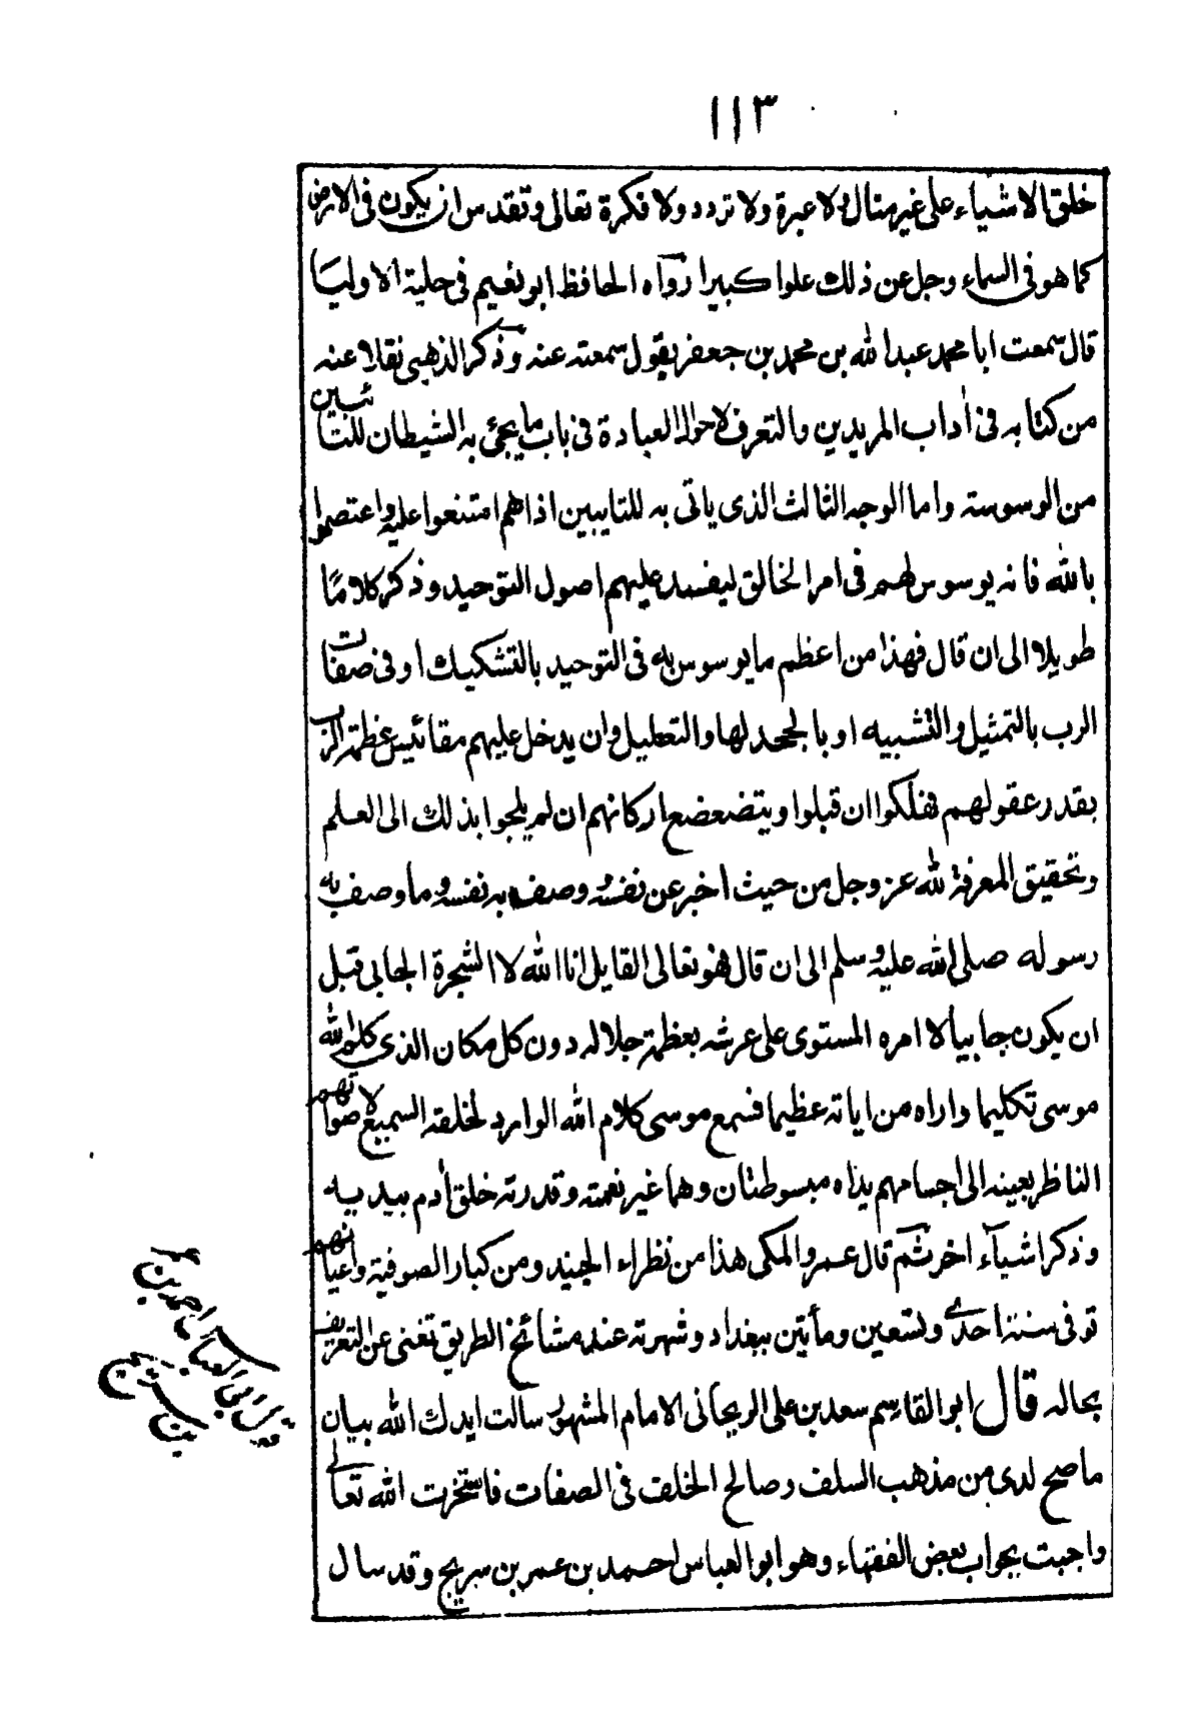 ١١٣
خلق الاشياء على غير مثال ولا عبرة ولا تردد ولا فكرة تعالى وتقدس ان يكون فى الارض
كما هو فى السماء وجل عن ذلك علوا كبيرا رواه الحافظ ابو نعيم فى حلية الاوليا
قال سمعت ابا محمد عبد الله بن محمد بن جعفر يقول سمعته عنه وذكر الذهبى نقلا عنه
من كتابه فى اداب المريدين والتعرف لاحوال العبادة فى باب ما يجئ به الشيطان للتائبين
من الوسوسة واما الوجه الثالث الذى ياتى به للتايبين اذا هم امتنعوا عليه واعتصموا
بالله فانه يوسوس لهم فى امر الخالق ليفسد عليهم اصول التوحيد وذكر كلامًا
طويلا الى ان قال فهذا من اعظم ما يوسوس به فى التوحيد بالتشكيك او فى صفات
الرب بالتمثيل والتشبيه او بالجحد لها والتعطيل وان يدخل عليهم مقائيس عظمة الرب
بقدر عقولهم فهلكوا ان قبلوا ويتضعضع اركانهم ان لم يلجوا بذلك الى العلم
وتحقيق المعرفة لله عز وجل من حيث اخبر عن نفسه ووصف به نفسه وما وصف به
رسوله صلى الله عليه وسلم الى ان قال فهو تعالى القايل انا الله لا الشجرة الجاىى قبل
ان يكون جاييا لا امره المستوى على عرشه بعظمة جلاله دون كل مكان الذى كلم الله
موسى تكليما واراه من اياته عظيما فسمع موسى كلام الله الوارد لخلقه السميع لاصواتهم
الناظر بعينه الى اجسامهم يداه مبسوطتان وهما غير نعمته وقدرته خلق أدم بيديه
وذكر اشيآء اخر ثم قال عمرو المكى هذا من نظراء الجنيد ومن كبار الصوفية واعيانهم
توفى سنة احدى وتسعين ومأيتين ببغداد وشهرته عند مشائخ الطريق تغنى عن التعريف
بحاله قال ابو القاسم سعد بن على الريحانى الامام المشهور سالت ايدك الله بيان
ما صح لدى من مذهب السلف وصالح الخلف فى الصفات فاستخرت الله تعالى
واجبت بجواب بعض الفقهاء وهو ابو العباس احمد بن عمر بن سريج وقد سال
قول ابى العباس احمد بن عمر
بن سريج